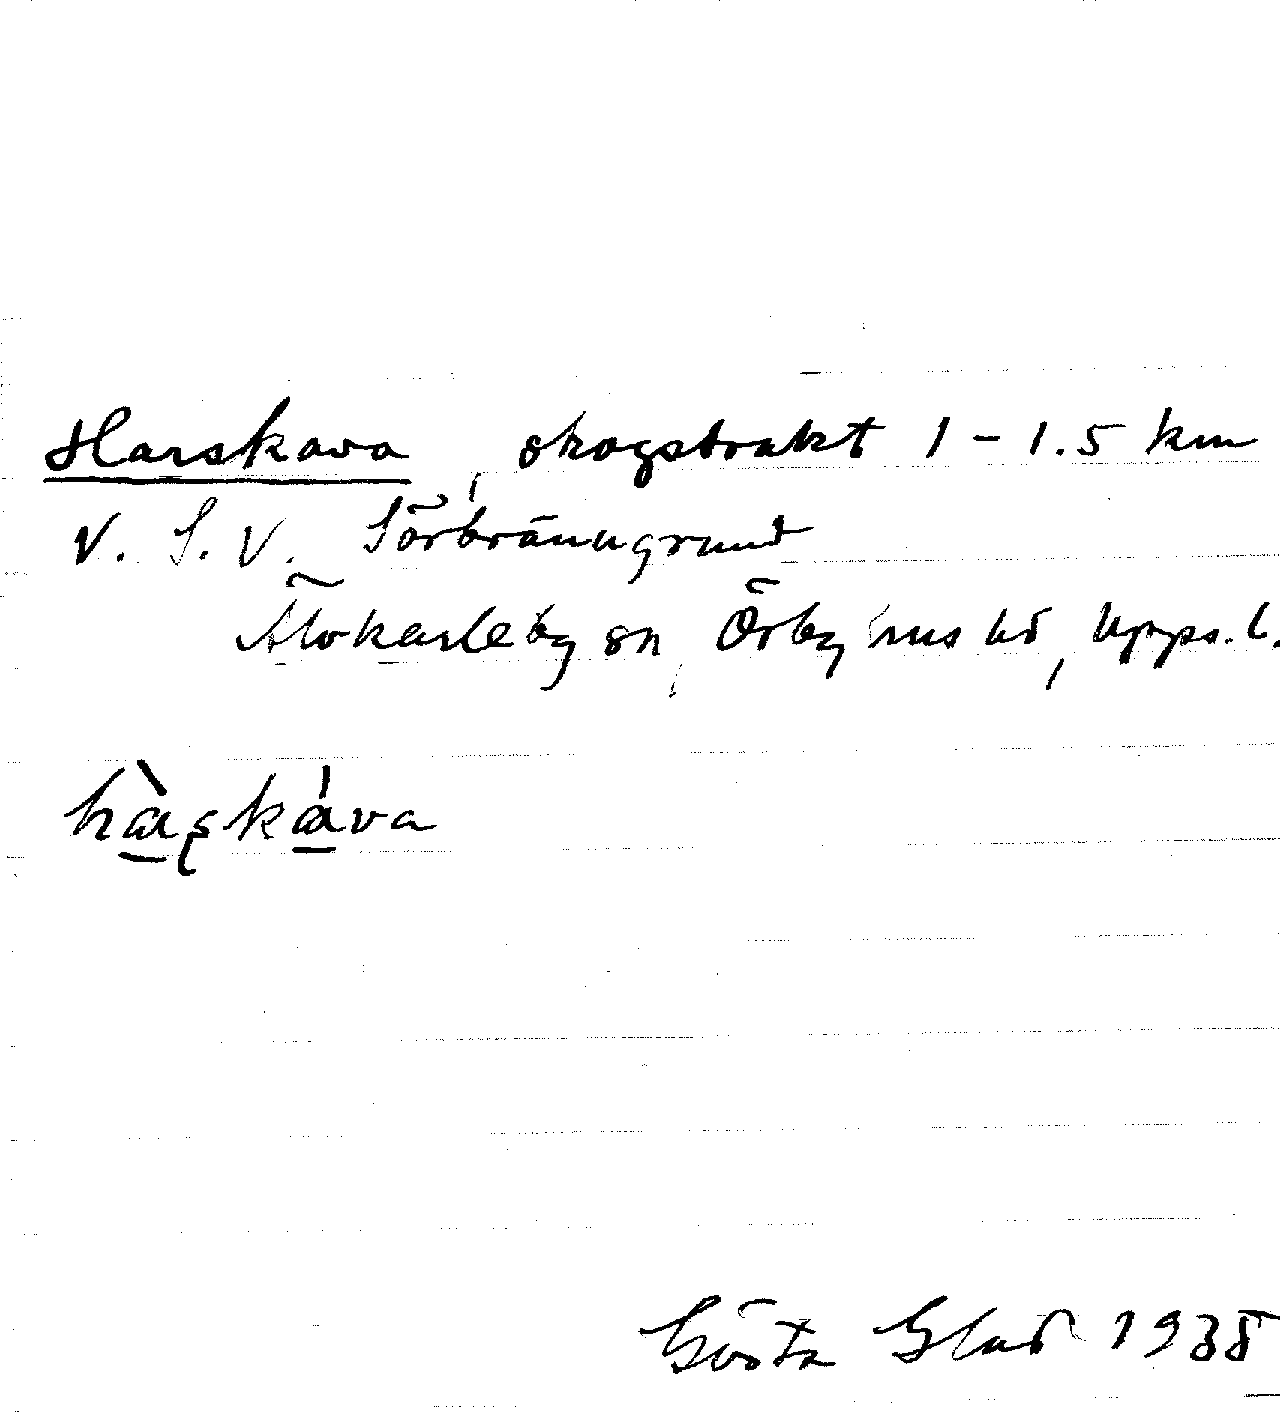 Harskava, skogstrakt 1-1.5 km
V. S. V. Sörbränngrund
Älvkarleby sn, Örbyhus hd, Upps. l.
hàʂkáva
Gösta Glad 1935